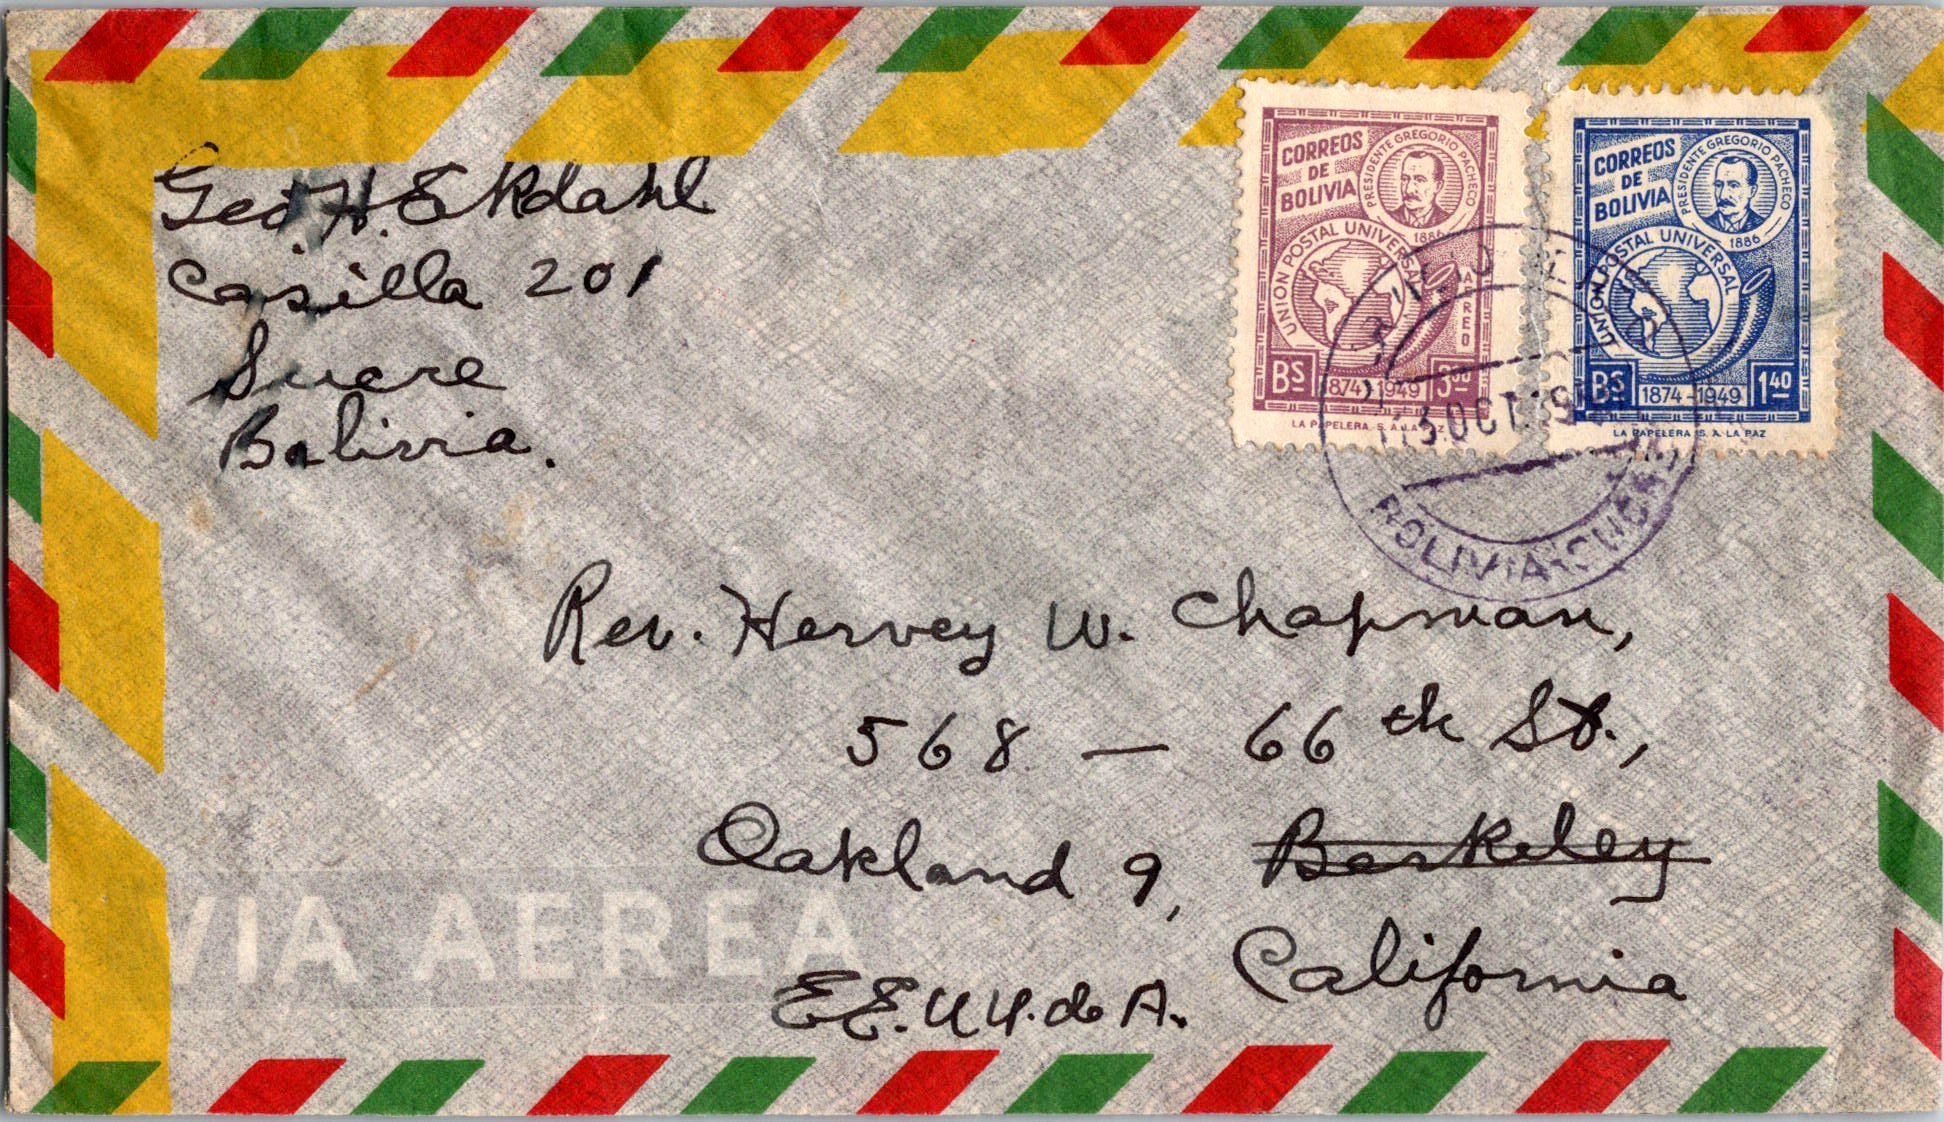 Geo. H. Ekdahl
Casilla 201
Sucre
Bolivia.
CORREOS
DE
BOLIVIA
PRESIDENTE GREGORIO PACHECO
1886
UNION POSTAL UNIVERSAL
AEREO
BS 1874-1949 3.00
LA PAPELERA S. A. LA PAZ
CORREOS
DE
BOLIVIA
PRESIDENTE GREGORIO PACHECO
1886
UNION POSTAL UNIVERSAL
BS 1874-1949 1.40
LA PAPELERA S. A. LA PAZ
OCT. 19
BOLIVIA
Rev. Hervey W. Chapman,
568 — 66th St.,
Oakland 9, Berkeley
California
VIA AEREA
EE. UU. de A.